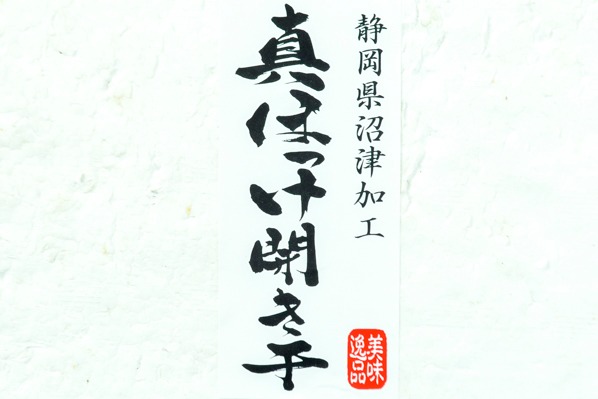 静岡県沼津加工
真ほっけ開き干
美味
逸品